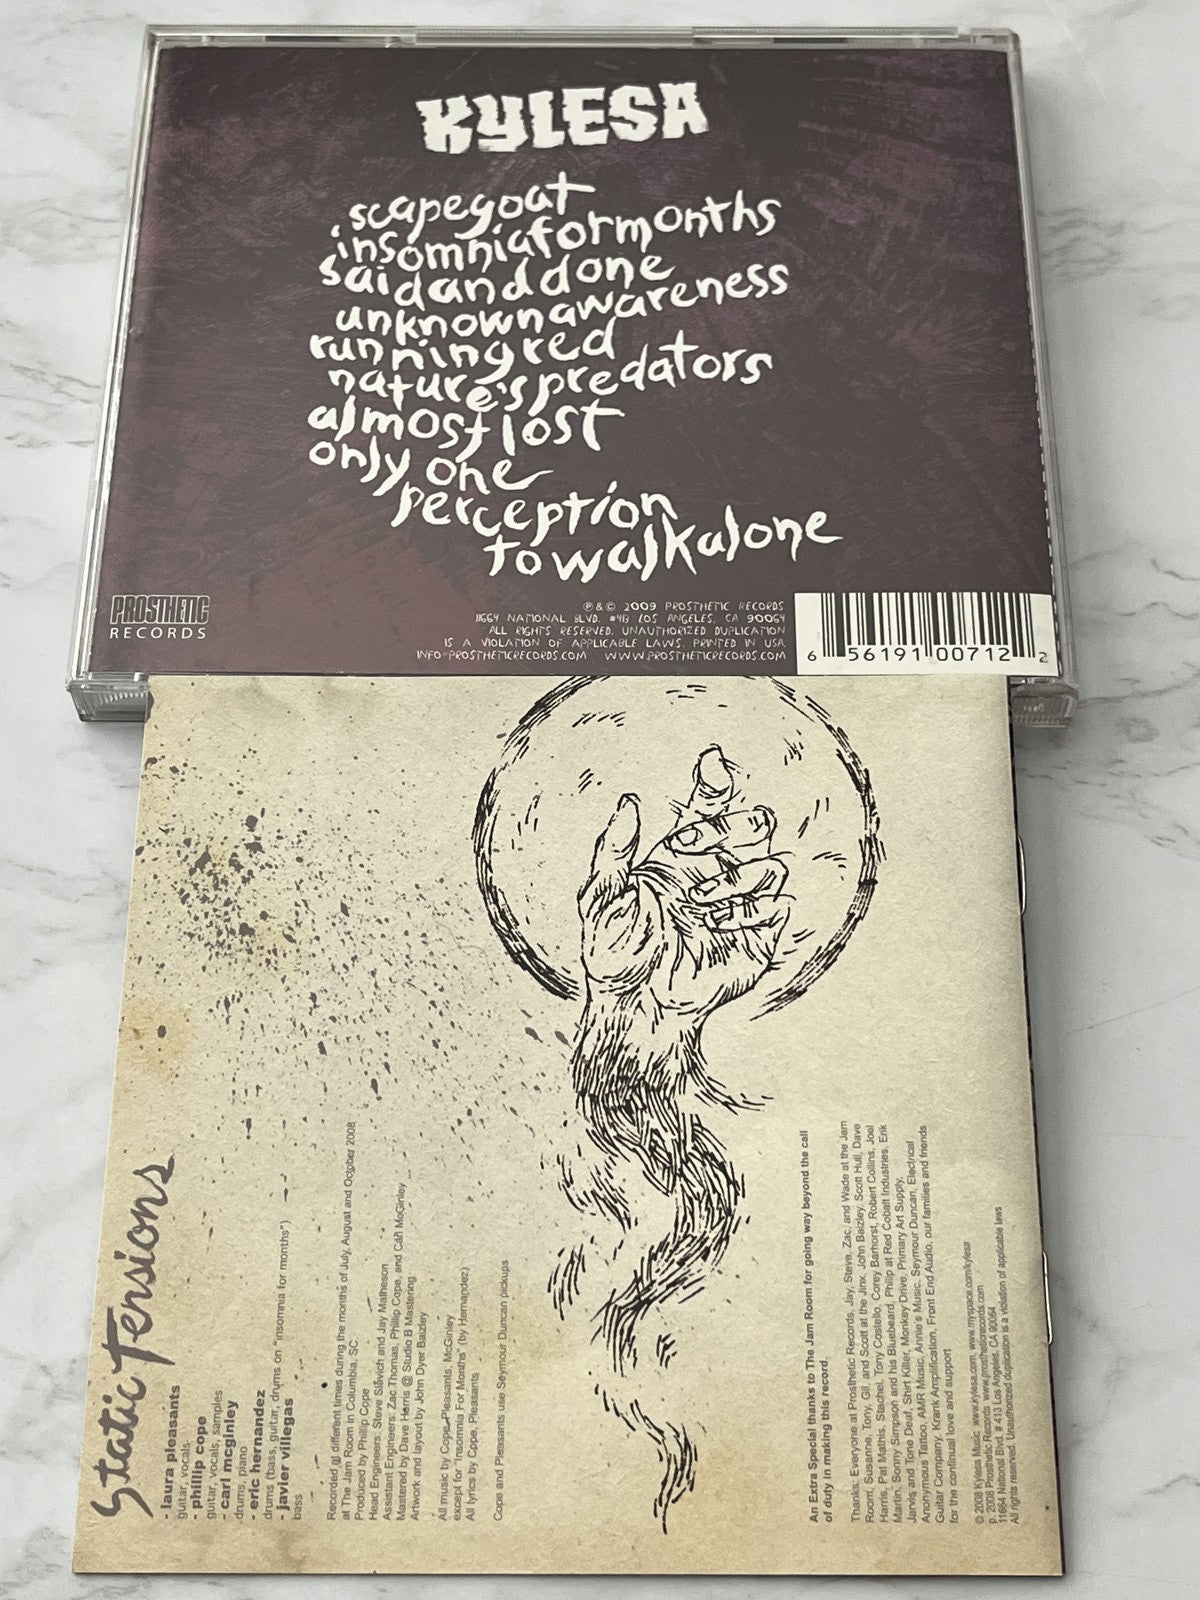 KYLESA
scapegoat
insomnia for months
said and done
unknown awareness
running red
nature's predators
almost lost
only one
perception
to walk alone
PROSTHETIC
RECORDS
℗ & © 2009 PROSTHETIC RECORDS
11664 NATIONAL BLVD. #413 LOS ANGELES, CA 90064
ALL RIGHTS RESERVED. UNAUTHORIZED DUPLICATION
IS A VIOLATION OF APPLICABLE LAWS. PRINTED IN USA
INFO@PROSTHETICRECORDS.COM WWW.PROSTHETICRECORDS.COM
6 56191 00712 2
Static Tensions
- laura pleasants
guitar, vocals
- phillip cope
guitar, vocals, samples
- carl mcginley
drums, piano
- eric hernandez
drums (bass, guitar, drums on "insomnia for months")
- javier villegas
bass
Recorded at different times during the months of July, August and October 2008
at The Jam Room in Columbia, SC
Produced by Phillip Cope
Head Engineers: Steve Slavich and Jay Matheson
Assistant Engineers: Zac Thomas, Phillip Cope, and Carl McGinley
Mastered by Dave Harris @ Studio B Mastering
Artwork and layout by John Dyer Baizley
All music by Cope, Pleasants, McGinley
except for "Insomnia For Months" (by Hernandez)
All lyrics by Cope, Pleasants
Cope and Pleasants use Seymour Duncan pickups
An Extra Special thanks to The Jam Room for going way beyond the call
of duty in making this record.
Thanks: Everyone at Prosthetic Records, Jay, Steve, Zac, and Wade at the Jam
Room, Susanne, Tony, Gil, and Scott at the Jinx, John Baizley, Scott Hull, Dave
Harris, Pat Mathis, Stachel, Tony Costello, Corey Barhorst, Robert Collins, Joel
Martin, Sonny Simpson and his Bluebeard, Philip at Red Cobalt Industries, Erik
Jarvis and Tone Deaf, Shirt Killer, Monkey Drive, Primary Art Supply,
Anonymous Tattoo, AMR Music, Annie's Music, Seymour Duncan, Electrical
Guitar Company, Krank Amplification, Front End Audio, our families and friends
for the continual love and support
© 2008 Kylesa Music www.kylesa.com, www.myspace.com/kylesa
p. 2008 Prosthetic Records www.prostheticrecords.com
11664 National Blvd. # 413 Los Angeles, CA 90064
All rights reserved. Unauthorized duplication is a violation of applicable laws